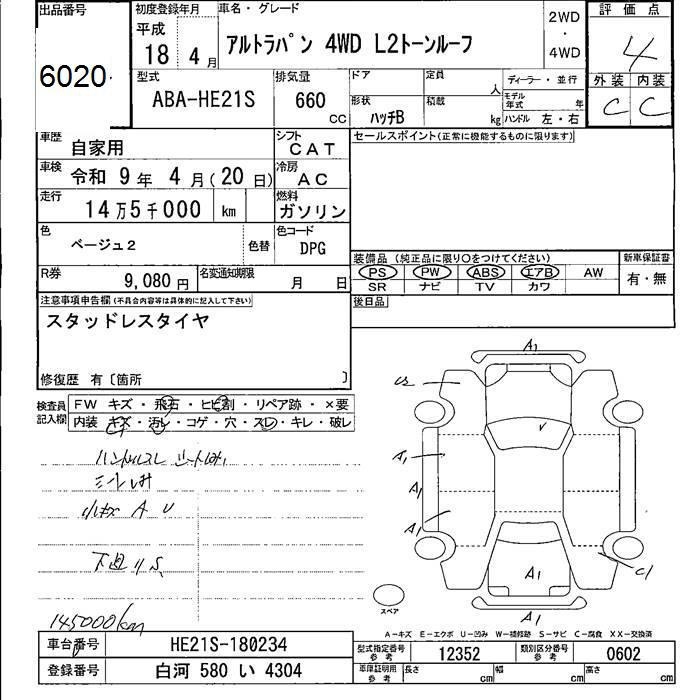 出品番号
6020
初度登録年月
平成
18年 4月
車名・グレード
アルトラパン 4WD L2トーンルーフ
2WD
・
4WD
評価点
4
外装 内装
C C
型式
ABA-HE21S
排気量
660 CC
ドア
定員
人
ディーラー・並行
形状
ハッチB
積載
kg
モデル年式
年
ハンドル 左・右
車歴
自家用
シフト
CAT
セールスポイント(正常に機能するものに限ります)
車検
令和 9年 4月(20日)
冷房
AC
走行
14万5千000 km
燃料
ガソリン
色
ベージュ2
色替
色コード
DPG
装備品 (純正品に限り○をつけてください)
新車保証書
PS PW ABS エアB AW
有・無
SR ナビ TV カワ
R券
9,080円
名変通知期限
月 日
後日品
注意事項申告欄(不具合内容等は具体的に記入して下さい)
スタッドレスタイヤ
修復歴 有〔箇所 〕
検査員記入欄
FW キズ・飛石・ヒビ割・リペア跡・×要
内装 キズ・汚レ・コゲ・穴・スレ・キレ・破レ
ハンドルスレ シート
小キズ A U
下廻り S
145000km
A1
A1
A1
A1
A1
A1
スペア
A-キズ E-エクボ U-凹み W-補修跡 S-サビ C-腐食 XX-交換済
車台番号
HE21S-180234
登録番号
白河 580 い 4304
型式指定番号
参考
12352
類別区分番号
参考
0602
車庫証明用
参考
長さ cm
幅 cm
高さ cm